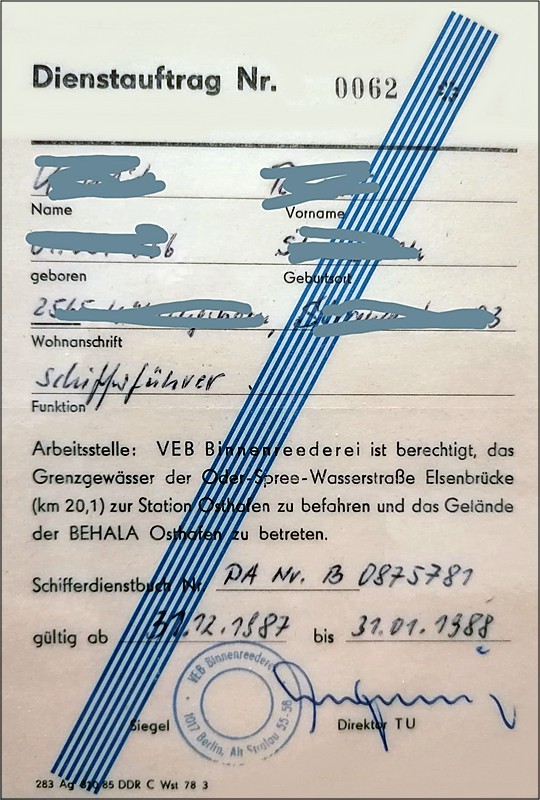 Dienstauftrag Nr. 0062
Name Vorname
geboren Geburtsort
Wohnanschrift
Schiffsführer
Funktion
Arbeitsstelle: VEB Binnenreederei ist berechtigt, das
Grenzgewässer der Oder-Spree-Wasserstraße Elsenbrücke
(km 20,1) zur Station Osthafen zu befahren und das Gelände
der BEHALA Osthafen zu betreten.
Schifferdienstbuch Nr. PA Nr. B 0875781
gültig ab 31.12.1987 bis 31.01.1988
VEB Binnenreederei
1017 Berlin, Alt Stralau 55-58
Siegel Direktor TU
283 Ag 85 DDR C Wst 78 3